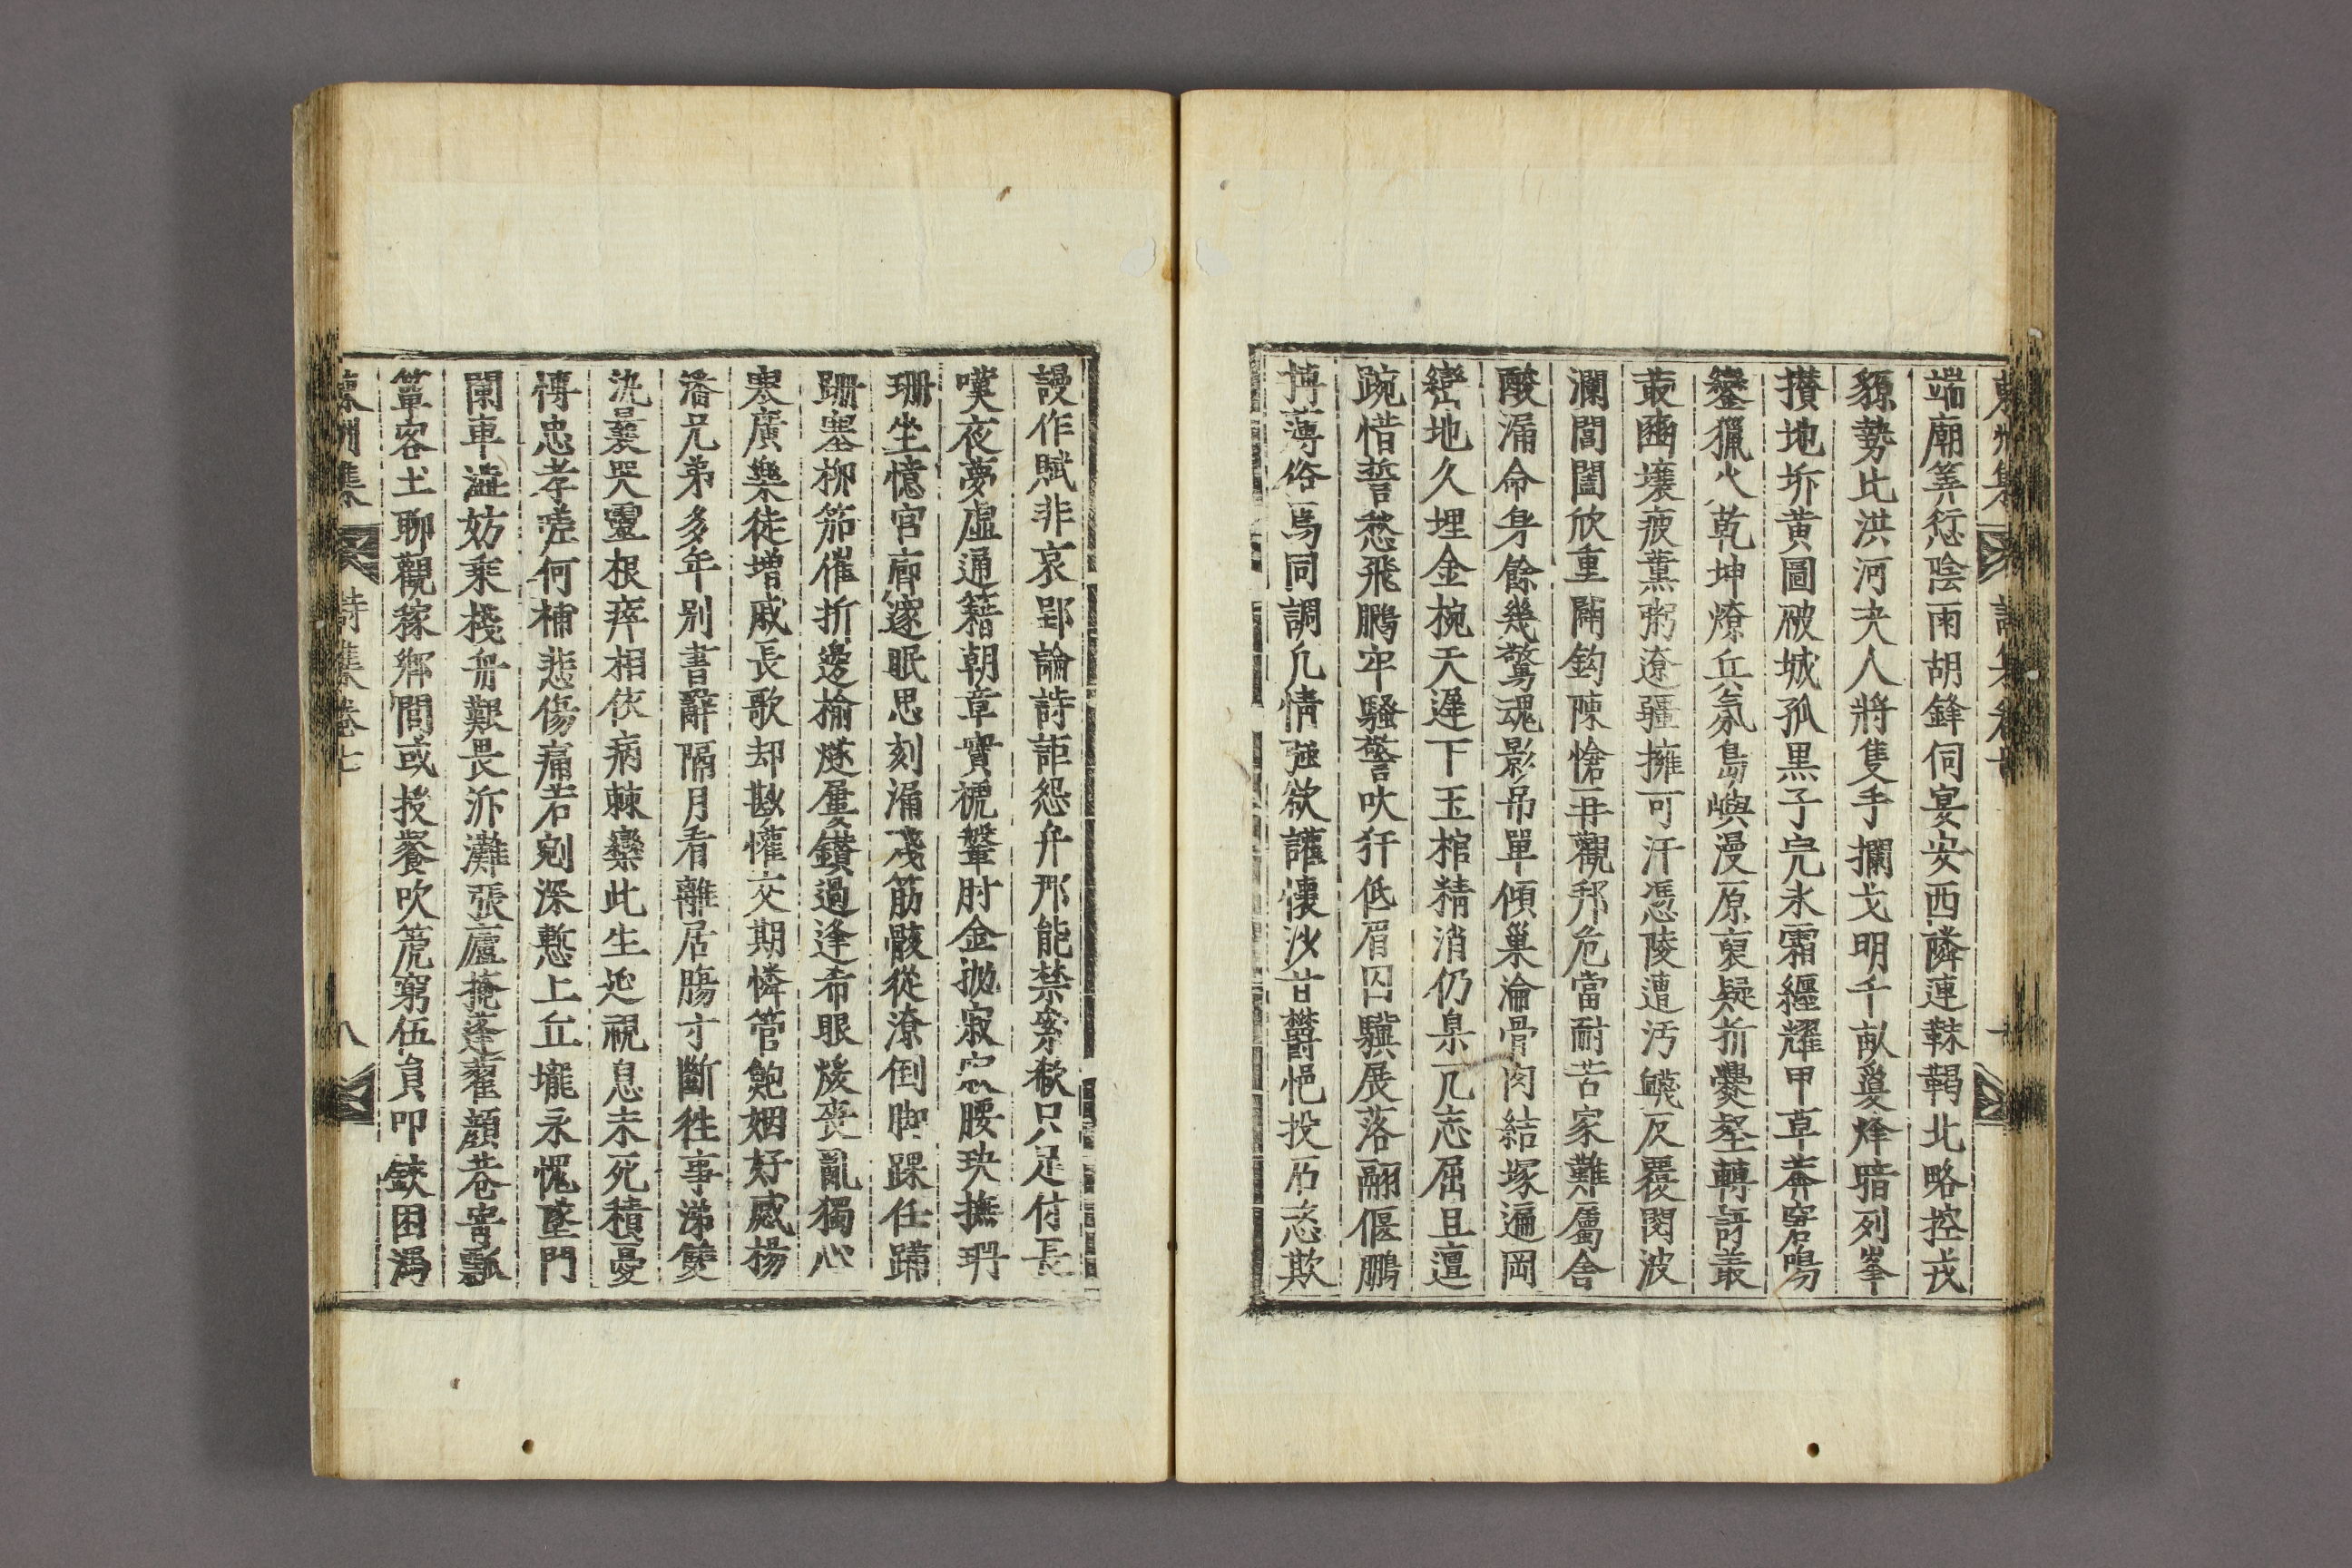 東州集 詩集卷七
端廟筭愆陰雨胡鋒伺宴安西隣連靺鞨北略控戎
貊勢比洪河夫人將隻手攔戈明千畝夐烽暗列峯
攅地坼黃圖破城孤黑子完氷霜纒耀甲草莽窘鳴
鑾獵火乾坤燎兵氛島嶼漫原裒疑折爨壑轉訝叢
菆豳壤疲薰粥遼疆擁可汗憑陵遭汚衊反覆閱波
瀾閶闔欣重闢鈎陳愴再觀邦危當耐苦家難屬含
酸漏命身餘幾驚魂影吊單傾巢淪骨肉結塚遍岡
巒地久埋金椀天遲下玉棺精消仍臬兀志屈且邅
踠惜誓愁飛鵩牢騷警吠犴低眉囚驥展落翮偃鵬
摶薄俗焉同調凡情亟欲讙懷沙甘鬱悒投石恣欺
謾作賦非哀郢論詩詎怨弁那能禁案欷只足付長
嘆夜夢虛通籍朝章實褫鞶肘金抛寂寂腰玦撫珊
珊坐憶官廊邃眠思刻漏殘筋骸從潦倒脚踝任蹣
跚塞柳笳催折邊楡燧屢鑽過逢希眼煖喪亂獨心
寒廣樂徒增戚長歌却尠懽交期憐管鮑姻好感楊
潘兄弟多年別書辭隔月看離居膓寸斷徃事涕雙
汍曩哭靈根瘁相依病棘欒此生延視息未死積憂
慱忠孝嗟何補悲傷痛若剜深慙上丘壠永愧墜門
闌車澁妨乘棧舟艱畏泝灘張廬掩蓬藋顔巷寄瓢
簞客土聊觀稼鄕閭或投餐吹箎窮伍員叩鋏困馮
東州集 詩集卷七 八